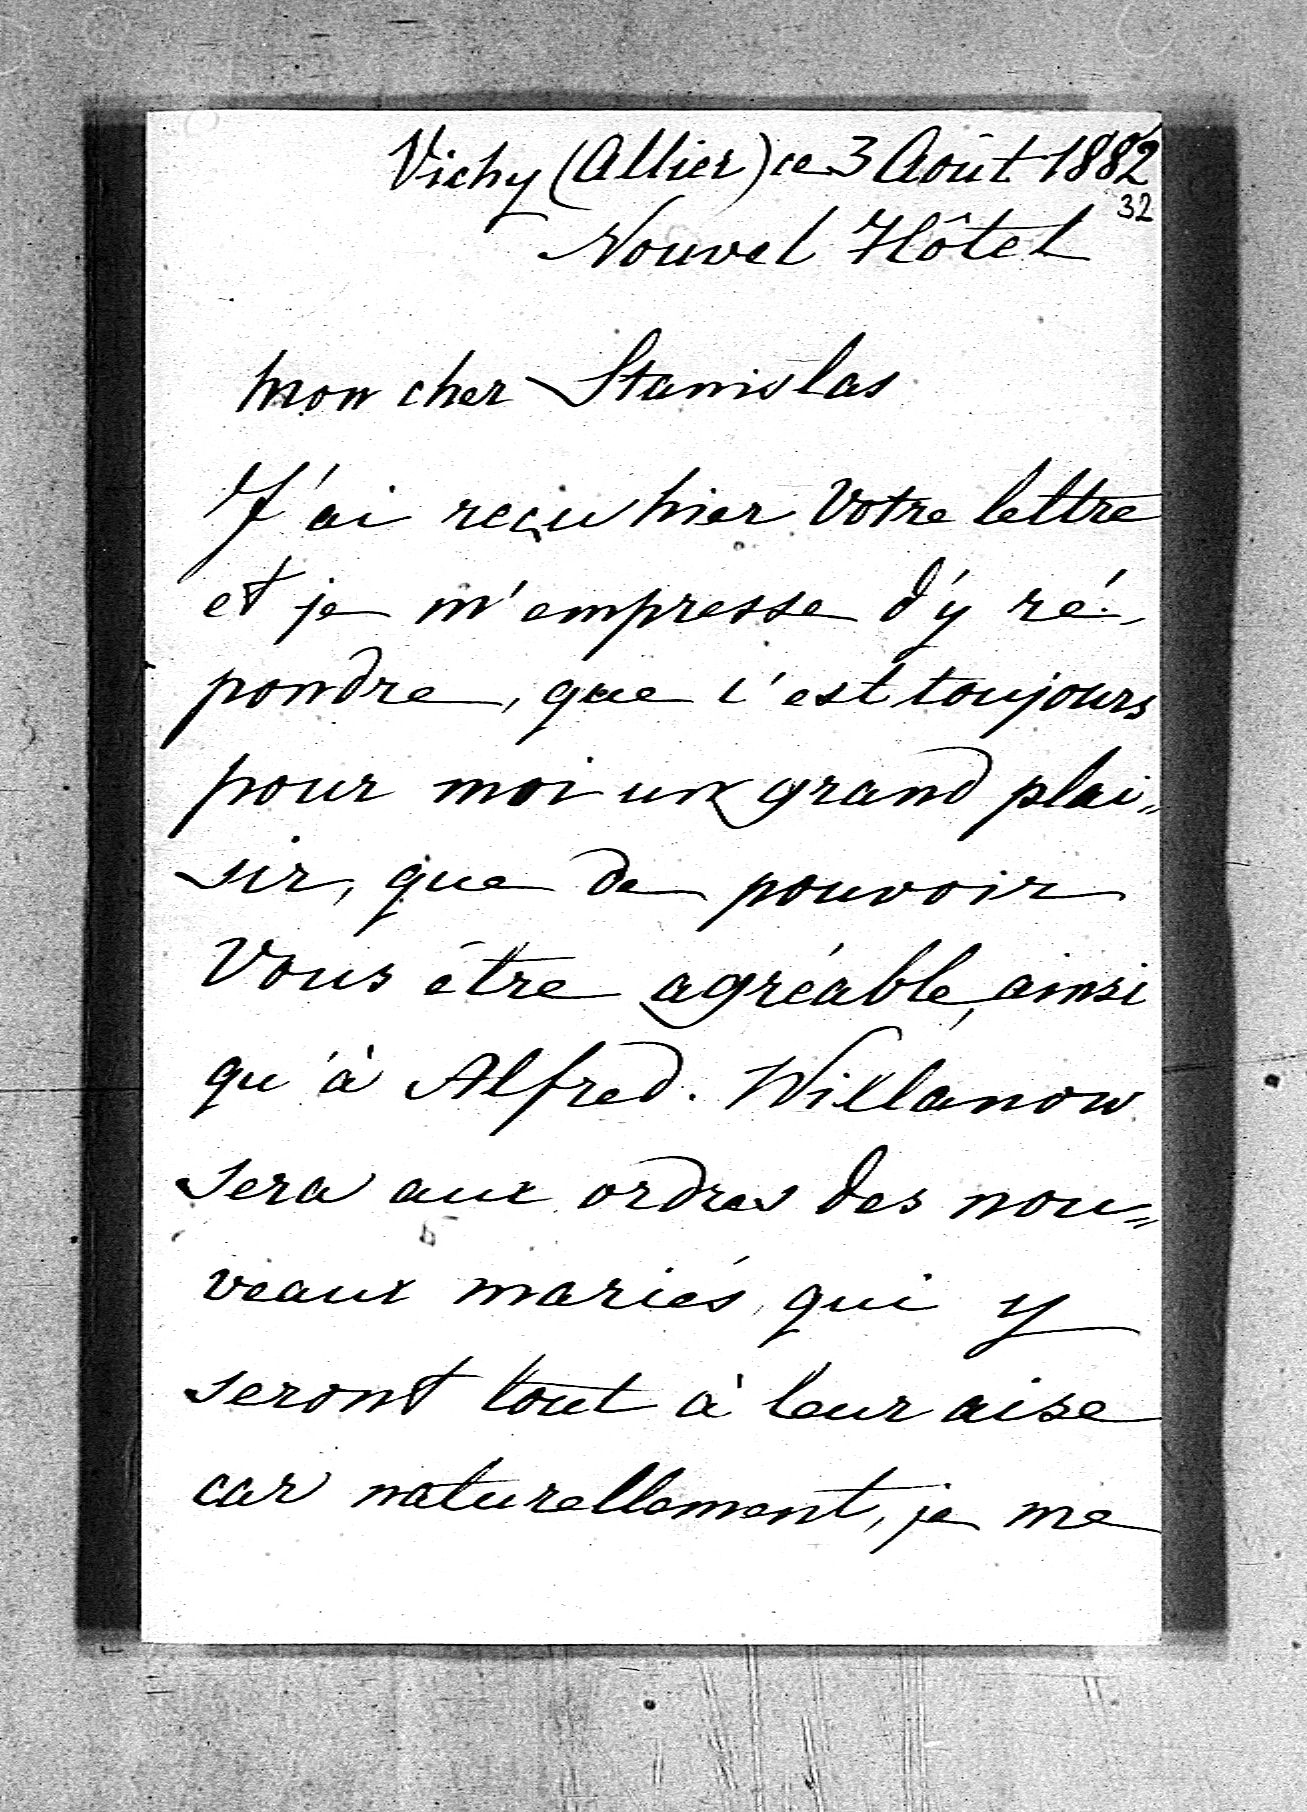 Vichy (Allier) ce 3 Août 1882
32
Nouvel Hôtel
Mon cher Stanislas
J'ai reçu hier Votre lettre
et je m'empresse d'y ré-
pondre, que c'est toujours
pour moi un grand plai„
sir, que de pouvoir
Vous être agréable, ainsi
qu'à Alfred. Willanow
sera aux ordres des nou„
veaux mariés, qui y
seront tout à leur aise
car naturellement, je me